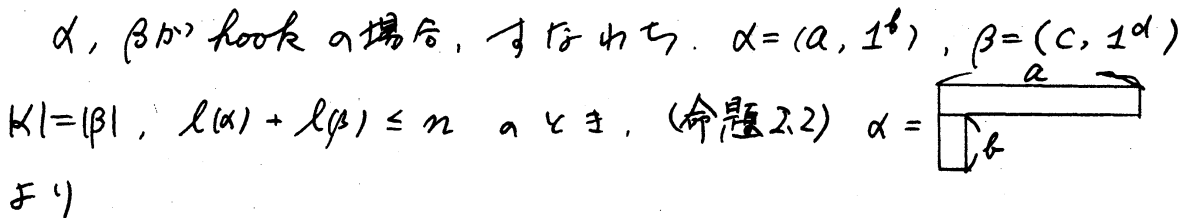 α, βが hook の場合, すなわち. α=(a, 1^b), β=(c, 1^d)
|α|=|β|, l(α) + l(β) ≤ n のとき, (命題2.2) α = a b
より